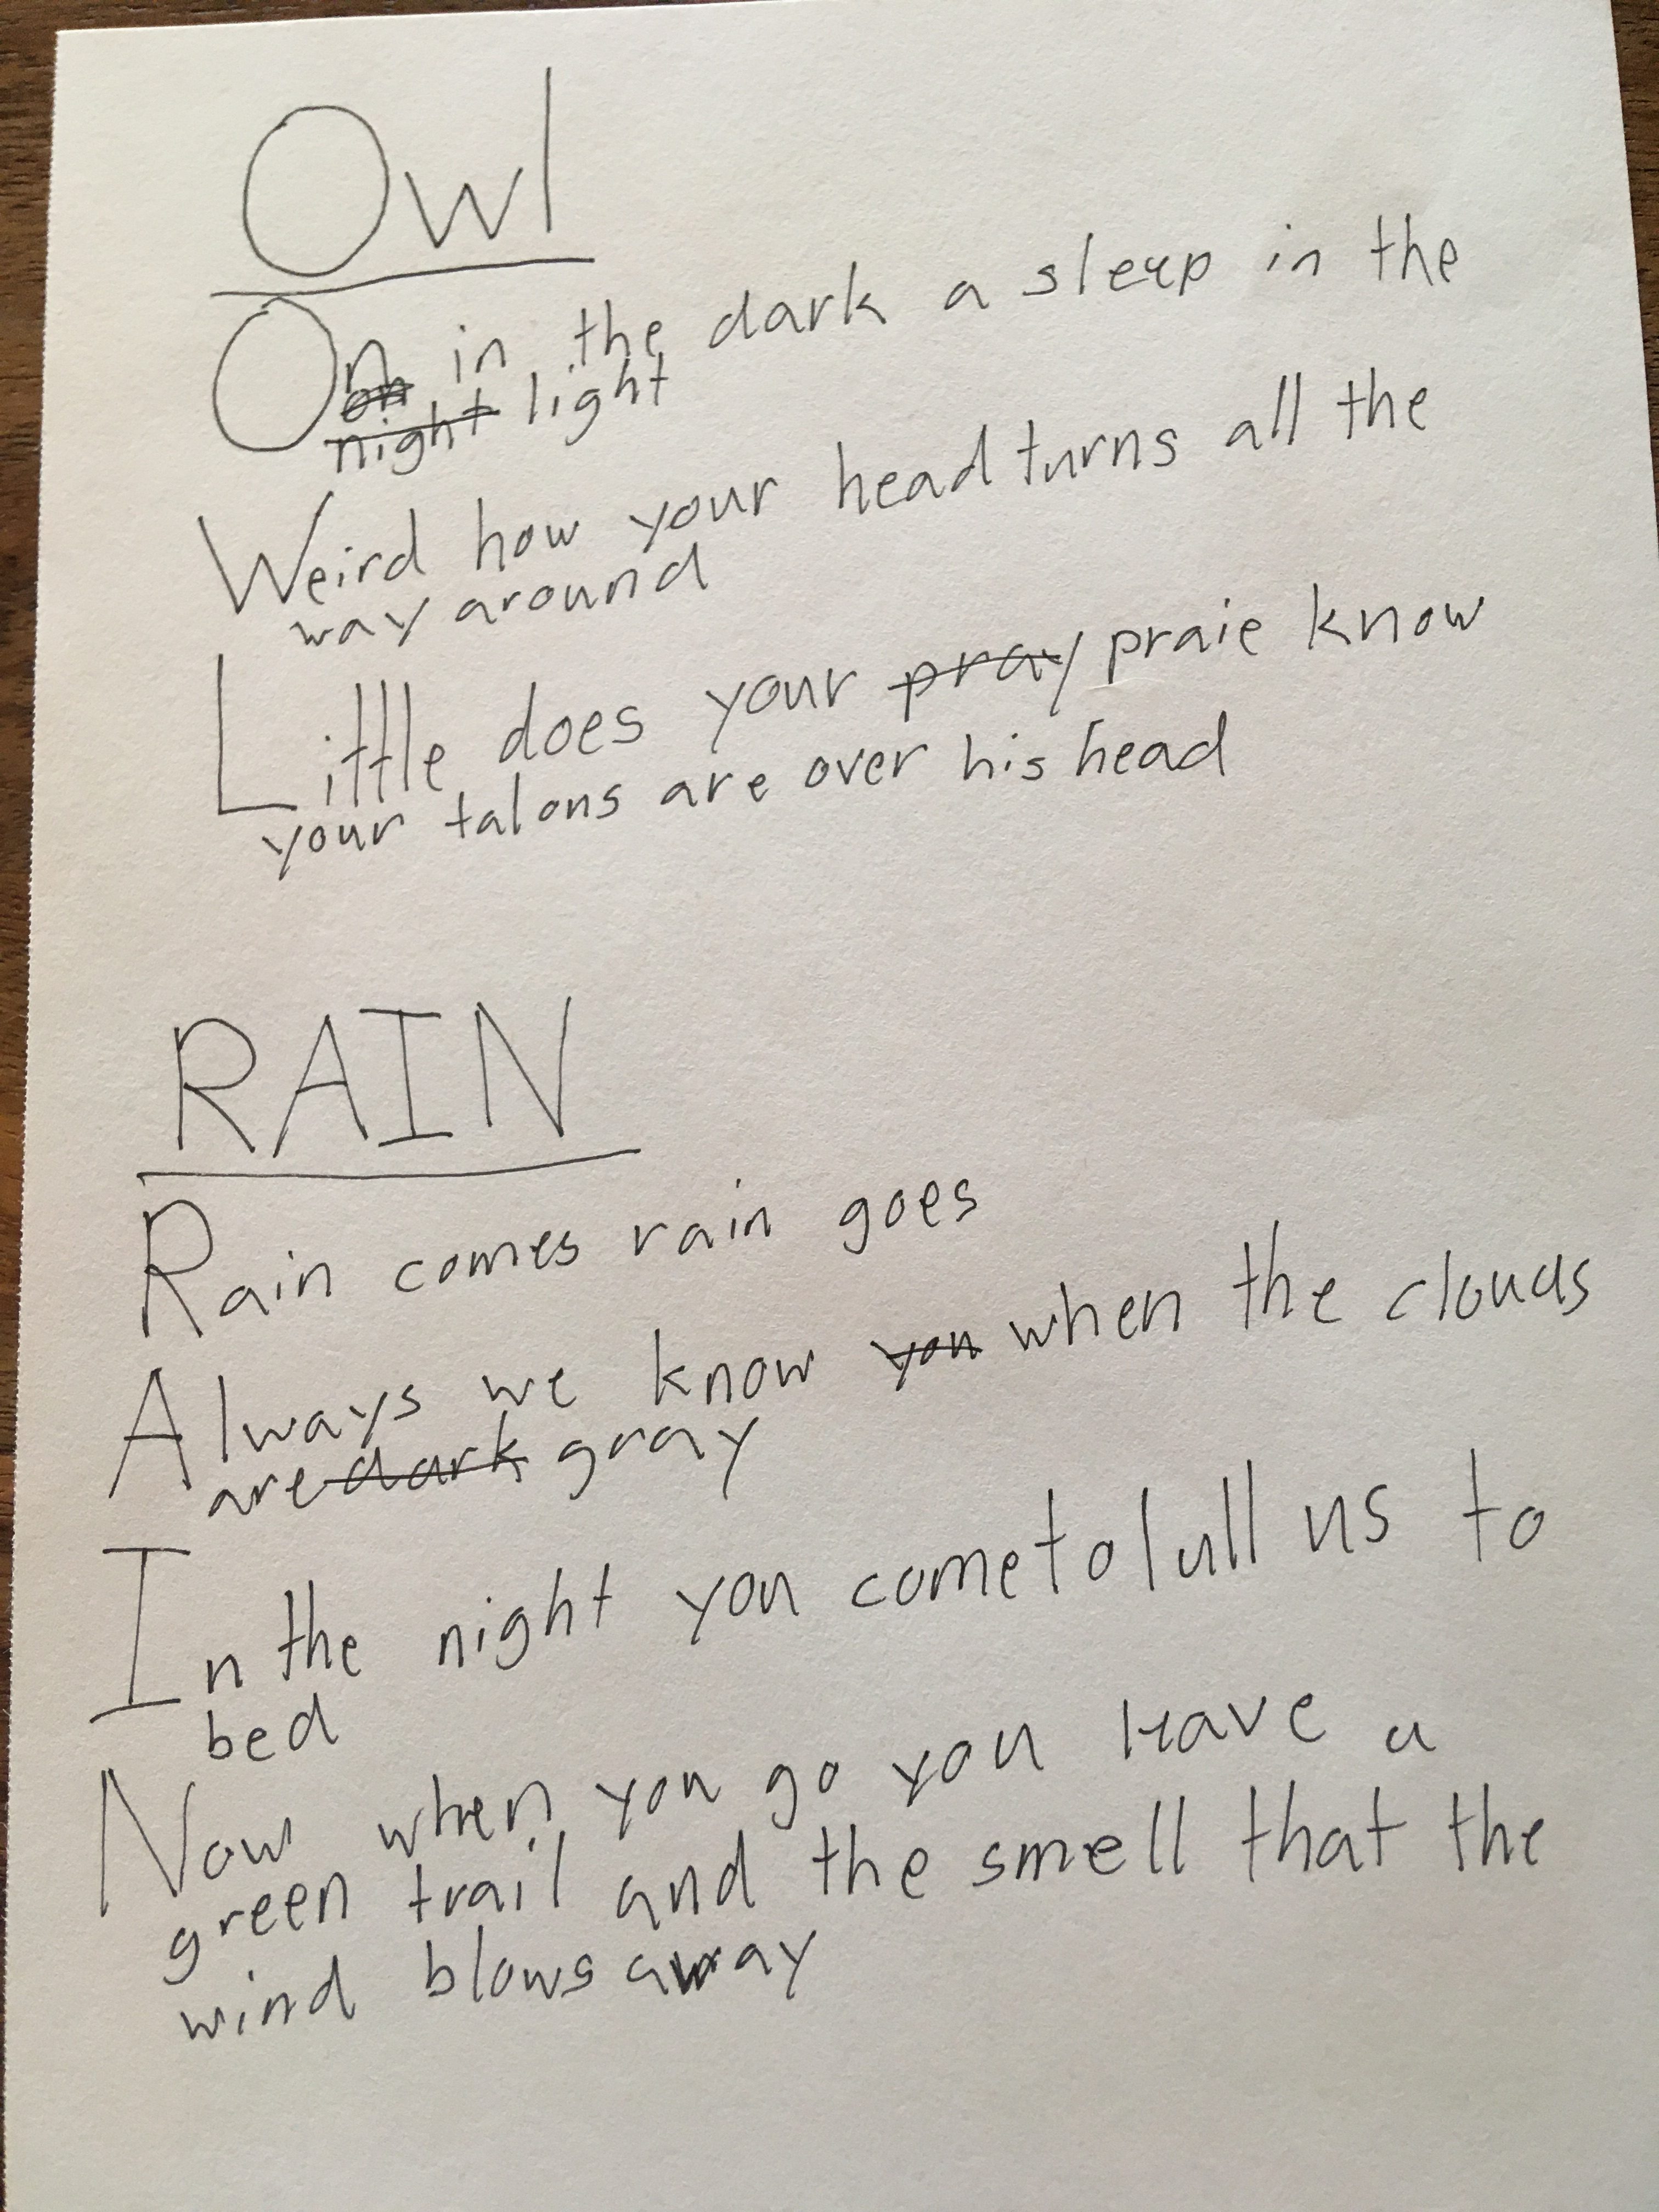 Owl
On in the dark a sleep in the
on
night light
Weird how your head turns all the
way around
Little does your pray praie know
your talons are over his head
RAIN
Rain comes rain goes
Always we know you when the clouds
are dark gray
In the night you come to lull us to
bed
Now when you go you leave a
green trail and the smell that the
wind blows away